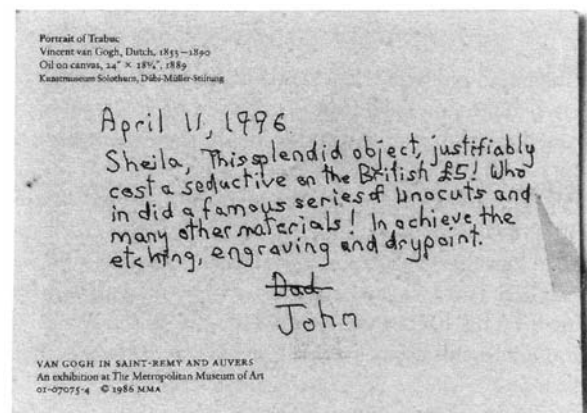 Portrait of Trabuc
Vincent van Gogh, Dutch, 1853–1890
Oil on canvas, 24" × 18¼", 1889
Kunstmuseum Solothurn, Dübi-Müller-Stiftung
April 11, 1996
Sheila, This splendid object, justifiably
cost a seductive on the British £5! Who
in did a famous series of linocuts and
many other materials! In achieve the
etching, engraving and drypoint.
Dad
John
VAN GOGH IN SAINT-REMY AND AUVERS
An exhibition at The Metropolitan Museum of Art
01-07075-4 © 1986 MMA